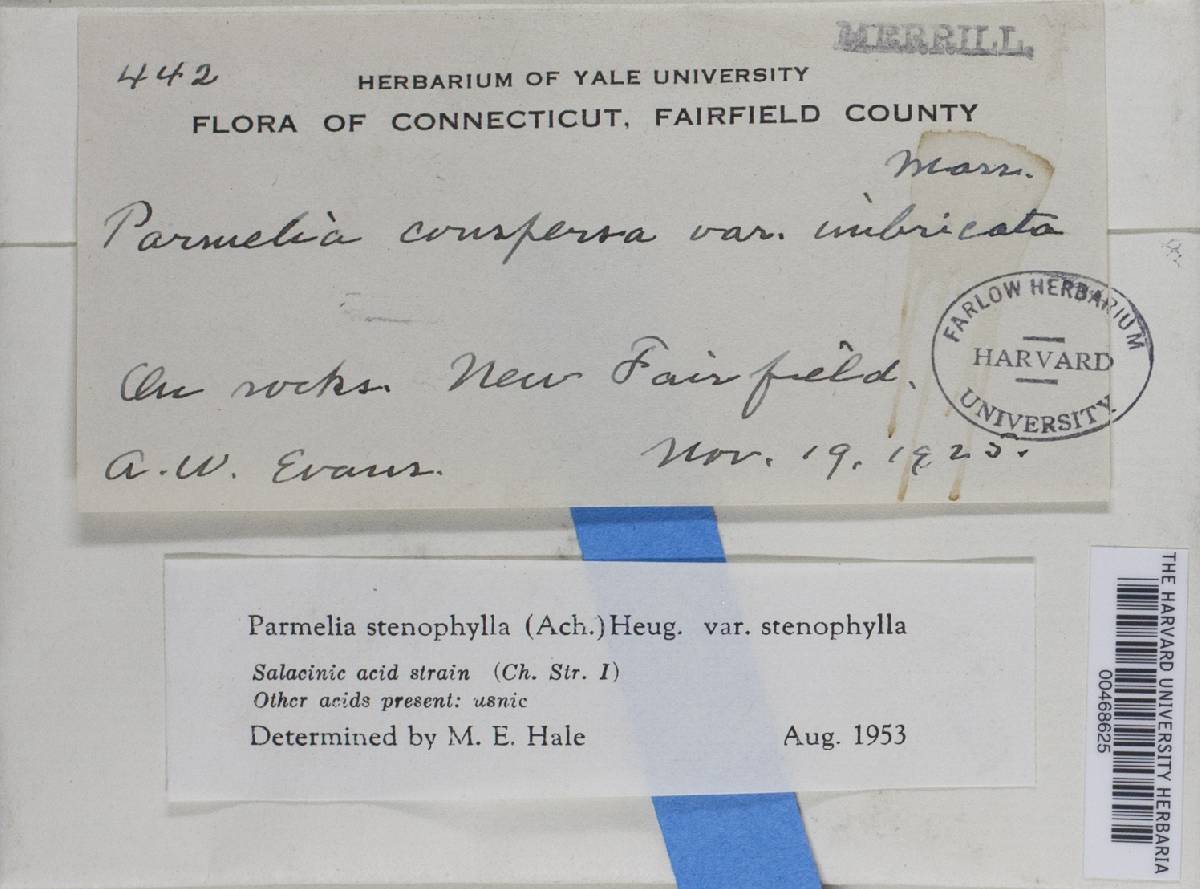 MERRILL.
442
HERBARIUM OF YALE UNIVERSITY
FLORA OF CONNECTICUT, FAIRFIELD COUNTY
Mass.
Parmelia conspersa var. imbricata
On rocks. New Fairfield.
A. W. Evans. Nov. 19, 1925.
FARLOW HERBARIUM
HARVARD
UNIVERSITY
Parmelia stenophylla (Ach.) Heug. var. stenophylla
Salacinic acid strain (Ch. Str. I)
Other acids present: usnic
Determined by M. E. Hale Aug. 1953
THE HARVARD UNIVERSITY HERBARIA
00468625